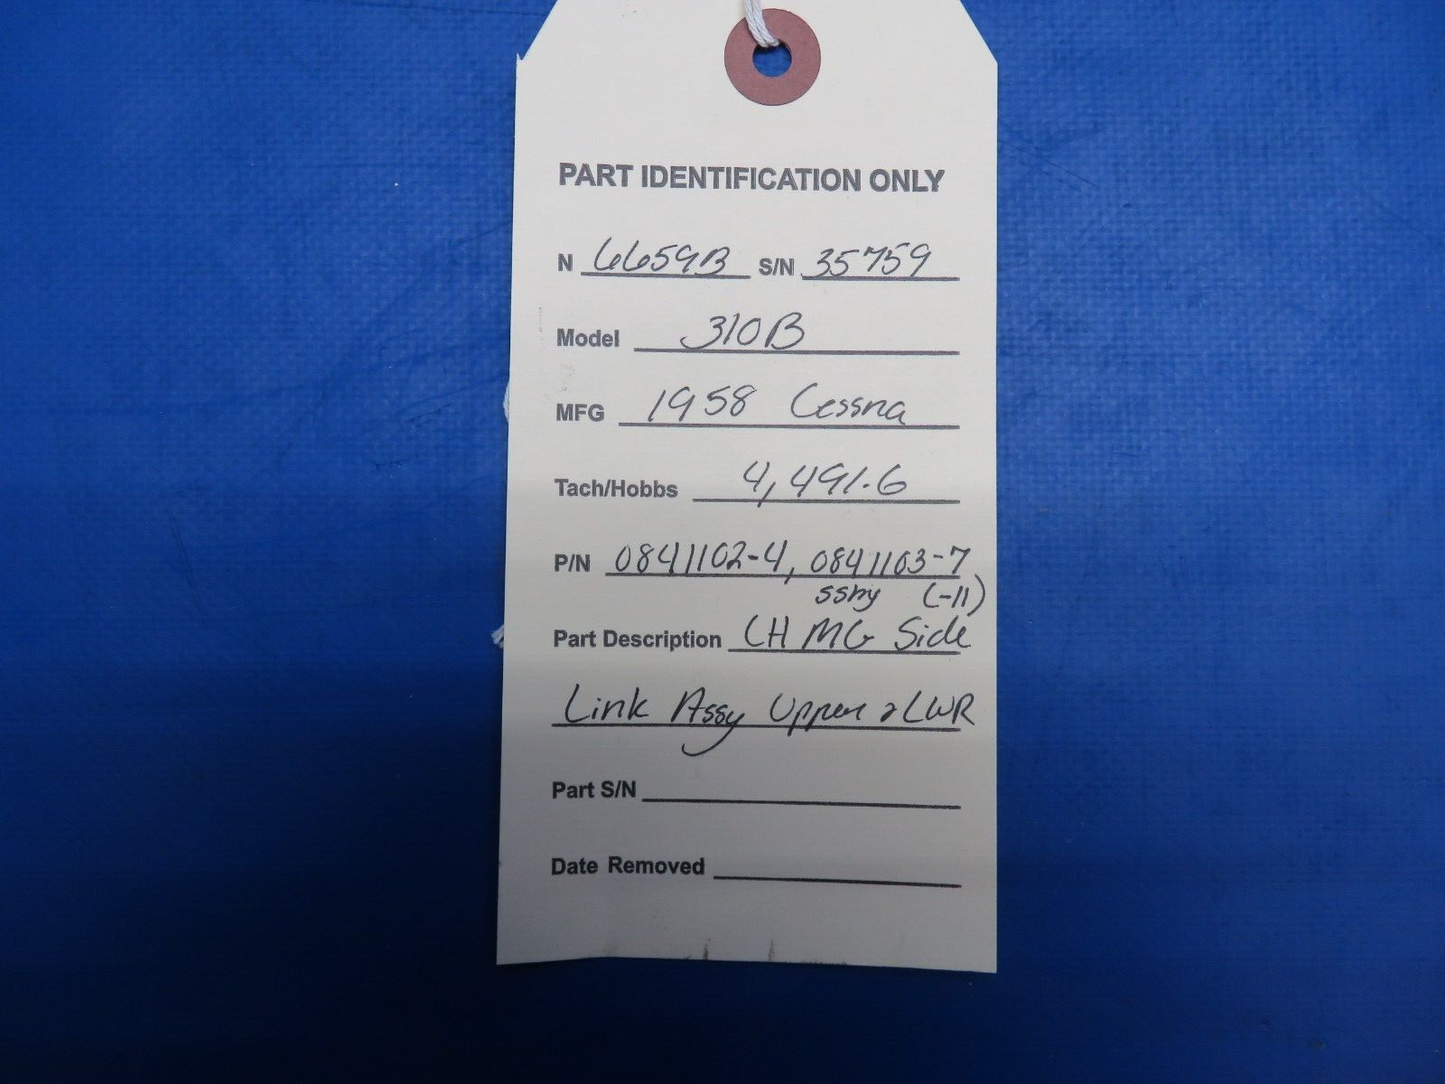 PART IDENTIFICATION ONLY
N 6659B S/N 35759
Model 310B
MFG 1958 Cessna
Tach/Hobbs 4,491.6
P/N 0841102-4, 0841103-7
ssby (-11)
Part Description LH MG Side
Link Assy Upper & LWR
Part S/N
Date Removed